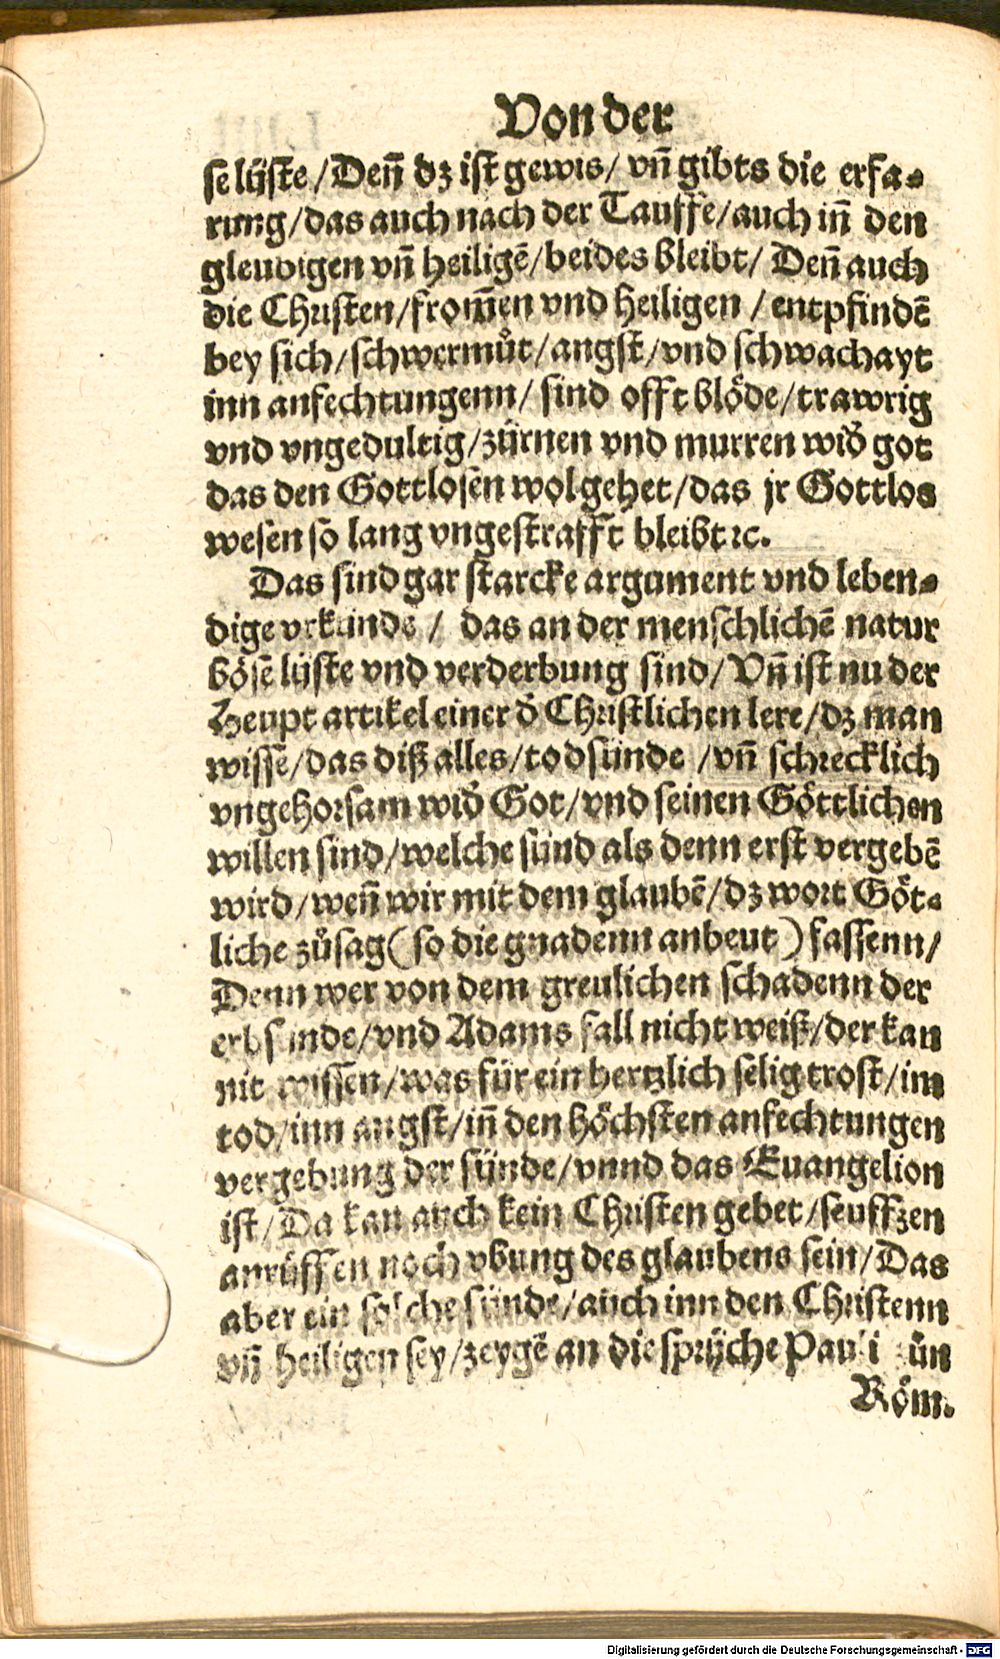 Von der
se lüste / Deñ dz ist gewis / vñ gibts die erfa⸗
rung / das auch nach der Tauffe / auch iñ den
gleubigen vñ heiligẽ / beides bleibt / Deñ auch
die Christen / from̃en vnd heiligen / entpfindẽ
bey sich / schwermůt / angst / vnd schwachayt
inn anfechtungenn / sind offt blöde / trawrig
vnd vngedultig / zürnen vnd murren wid̕ got
das den Gottlosen wol gehet / das jr Gottlos
wesen so lang vngestrafft bleibt ꝛc.
Das sind gar starcke argument vnd leben⸗
dige vrkunde / das an der menschlichẽ natur
bösẽ lüste vnd verderbung sind / Vñ ist nu der
Heupt artikel einer d̕ Christlichen lere / dz man
wissẽ / das diß alles / todsünde / vñ schrecklich
vngehorsam wid̕ Got / vnd seinen Göttlichen
willen sind / welche sünd als denn erst vergebẽ
wird / weñ wir mit dem glaubẽ / dz wort Göt⸗
liche zůsag ( so die gnadenn anbeut ) fassenn /
Denn wer von dem greulichen schadenn der
erbsünde / vnd Adams fall nicht weiß / der kan
nit wissen / was für ein hertzlich selig trost / im
tod / inn angst / iñ den höchsten anfechtungen
vergebung der sünde / vnnd das Euangelion
ist / Da kan auch kein Christen gebet / seuffzen
anrüffen noch vbung des glaubens sein / Das
aber ein solche sünde / auch inn den Christenn
vñ heiligen sey / zeygẽ an die sprüche Pauli zůn
Röm.
Digitalisierung gefördert durch die Deutsche Forschungsgemeinschaft - DFG